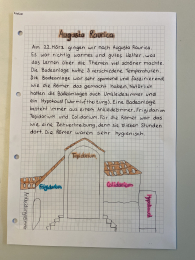 Augusta Raurica
Am 22. März gingen wir nach Augusta Raurica.
Es war richtig warmes und gutes Wetter, was
das Lernen über die Themen viel schöner machte.
Die Badeanlage hatte 3 verschiedene Temperaturen.
Die Badeanlage war sehr spannend und faszinierend
wie die Römer das gemacht haben. Natürlich
hatten die Badeanlagen auch Umkleidezimmer und
ein Hypokaust (Warmluftheizung). Eine Badeanlage
besteht immer aus einem Ankleidezimmer, Frigidarium
Tepidarium und Caldarium. Für die Römer war das
wie eine Zeitvertreibung, denn sie blieben Stunden
dort. Die Römer waren sehr hygienisch.
Tepidarium
Frigidarium
Caldarium
Ankleidezimmer
Hypokaust